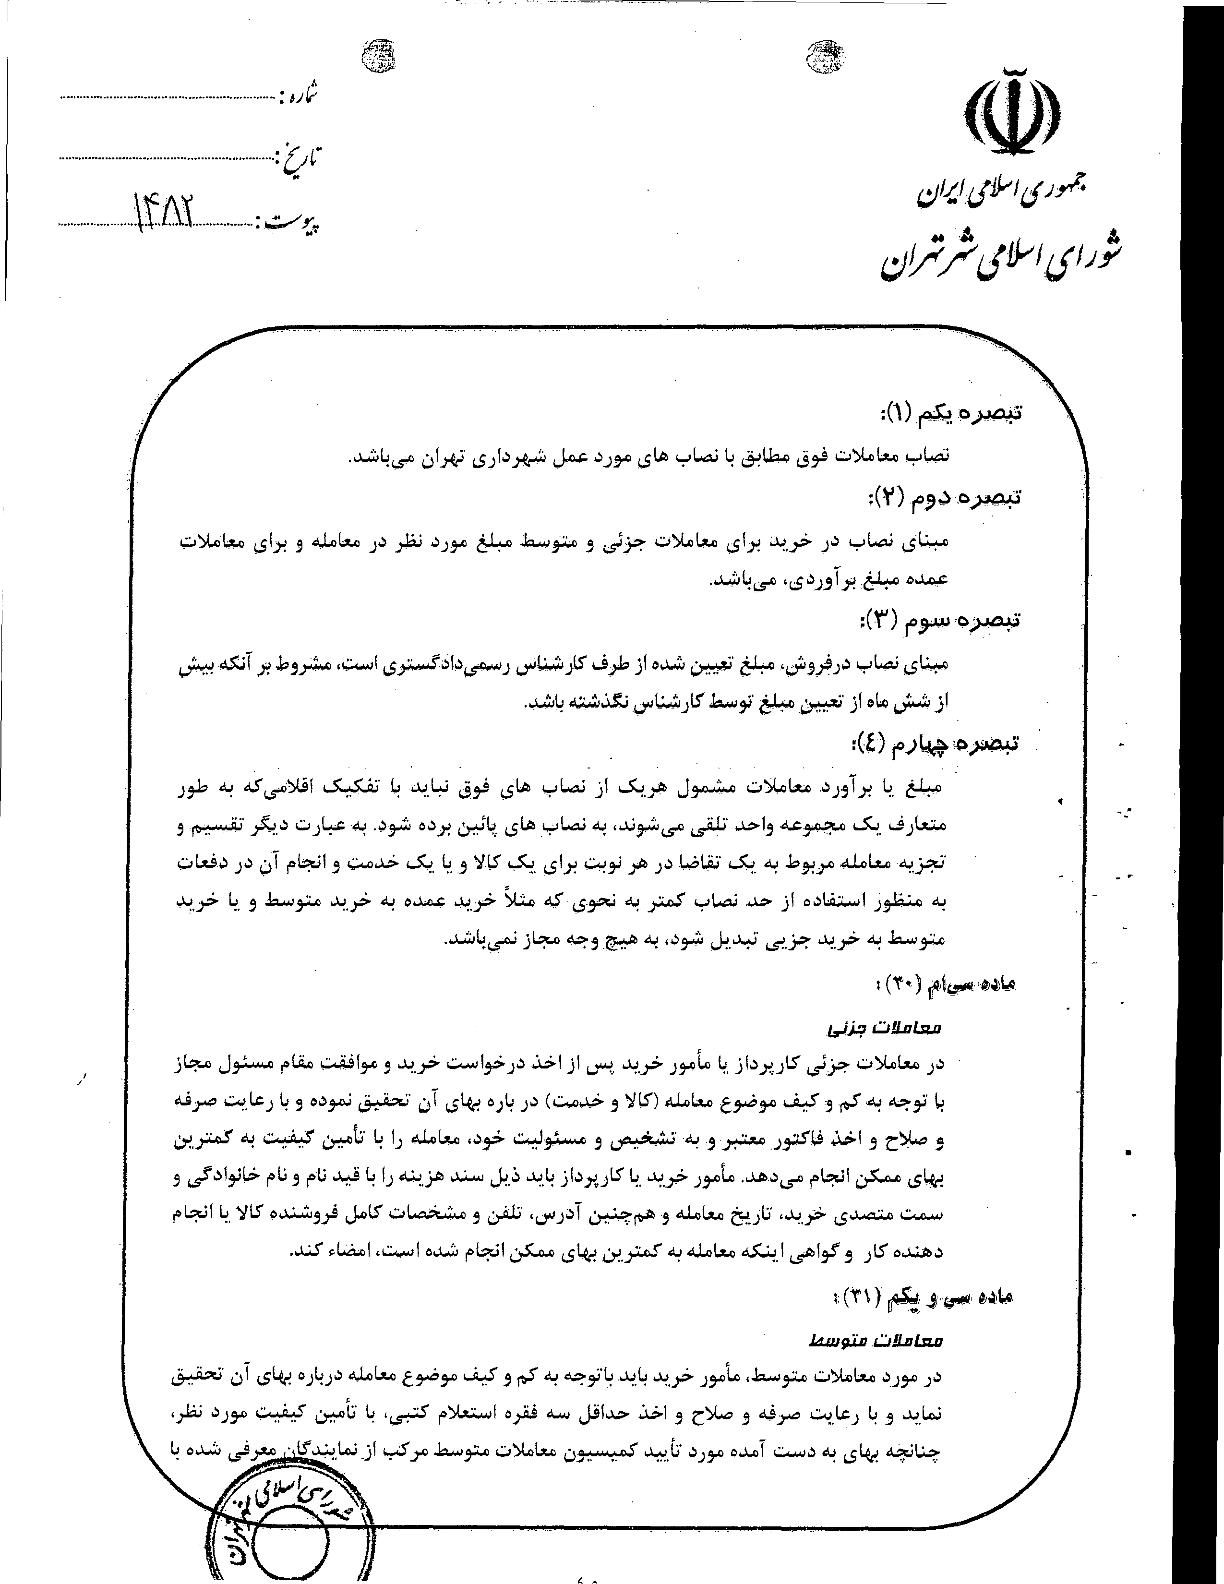 جمهوری اسلامی ایران
شورای اسلامی شهر تهران
شماره :
تاریخ :
پیوست : ۱۴۸۲
تبصره یکم (۱):
نصاب معاملات فوق مطابق با نصاب های مورد عمل شهرداری تهران می‌باشد.
تبصره دوم (۲):
مبنای نصاب در خرید برای معاملات جزئی و متوسط مبلغ مورد نظر در معامله و برای معاملات
عمده مبلغ برآوردی، می‌باشد.
تبصره سوم (۳):
مبنای نصاب درفروش، مبلغ تعیین شده از طرف کارشناس رسمی‌دادگستری است، مشروط بر آنکه بیش
از شش ماه از تعیین مبلغ توسط کارشناس نگذشته باشد.
تبصره چهارم (٤):
مبلغ یا برآورد معاملات مشمول هریک از نصاب های فوق نباید با تفکیک اقلامی‌که به طور
متعارف یک مجموعه واحد تلقی می‌شوند، به نصاب های پائین برده شود. به عبارت دیگر تقسیم و
تجزیه معامله مربوط به یک تقاضا در هر نوبت برای یک کالا و یا یک خدمت و انجام آن در دفعات
به منظور استفاده از حد نصاب کمتر به نحوی که مثلاً خرید عمده به خرید متوسط و یا خرید
متوسط به خرید جزیی تبدیل شود، به هیچ وجه مجاز نمی‌باشد.
ماده سی‌ام (۳۰):
معاملات جزئی
در معاملات جزئی کارپرداز یا مأمور خرید پس از اخذ درخواست خرید و موافقت مقام مسئول مجاز
با توجه به کم و کیف موضوع معامله (کالا و خدمت) در باره بهای آن تحقیق نموده و با رعایت صرفه
و صلاح و اخذ فاکتور معتبر و به تشخیص و مسئولیت خود، معامله را با تأمین کیفیت به کمترین
بهای ممکن انجام می‌دهد. مأمور خرید یا کارپرداز باید ذیل سند هزینه را با قید نام و نام خانوادگی و
سمت متصدی خرید، تاریخ معامله و هم‌چنین آدرس، تلفن و مشخصات کامل فروشنده کالا یا انجام
دهنده کار و گواهی اینکه معامله به کمترین بهای ممکن انجام شده است، امضاء کند.
ماده سی و یکم (۳۱):
معاملات متوسط
در مورد معاملات متوسط، مأمور خرید باید باتوجه به کم و کیف موضوع معامله درباره بهای آن تحقیق
نماید و با رعایت صرفه و صلاح و اخذ حداقل سه فقره استعلام کتبی، با تأمین کیفیت مورد نظر،
چنانچه بهای به دست آمده مورد تأیید کمیسیون معاملات متوسط مرکب از نمایندگان معرفی شده با
شورای اسلامی شهر تهران